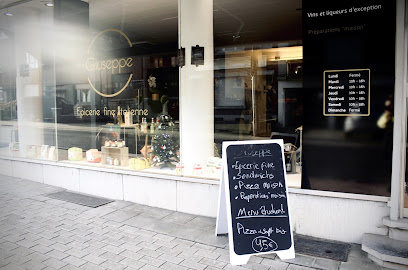 Vins et liqueurs d'exception
Préparations "maison"
Giuseppe
Epicerie fine italienne
Lundi Fermé
Mardi 10h - 18h
Mercredi 10h - 18h
Jeudi 10h - 18h
Vendredi 10h - 18h
Samedi 10h - 18h
Dimanche Fermé
Giuseppe
• Epicerie fine
• Sandwichs
• Pizza maison
• Préparations maison
Menu
Pizza